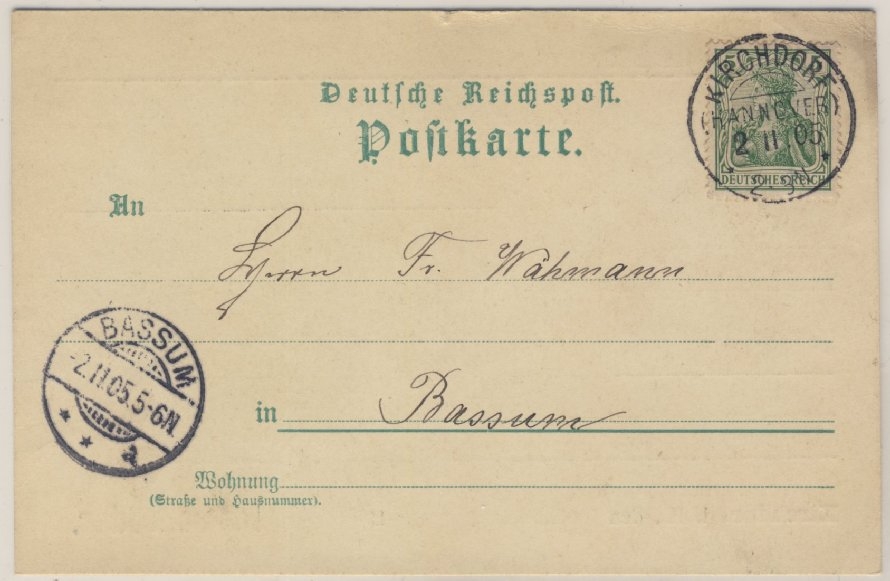 Deutsche Reichspost.
Postkarte.
KIRCHDORF
(HANNOVER)
2 11 05
* 2-3N *
DEUTSCHES REICH
An
Herrn Fr. Wähmann
BASSUM
-2.11.05.5-6N
* * a
in Bassum
Wohnung
(Straße und Hausnummer).